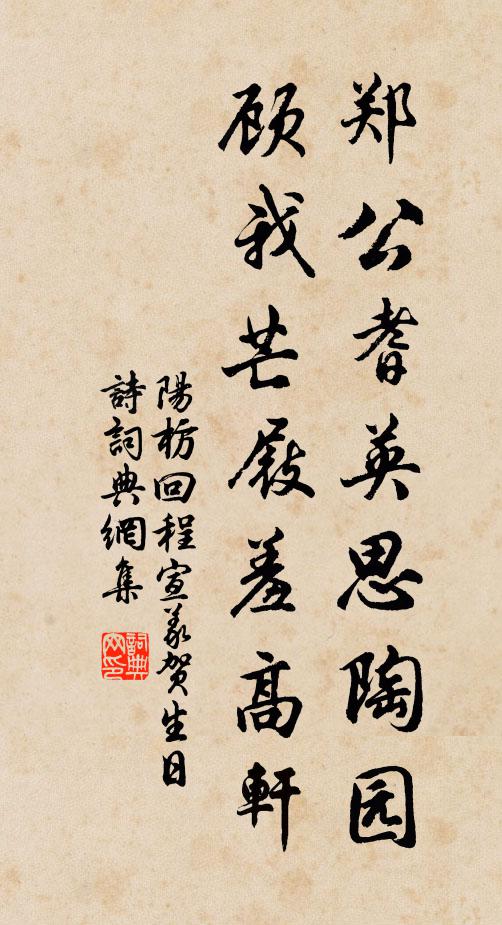 郑公耆英思陶园
顾我芒屐羞高軒
陽枋回程宣義贺生日
詩詞典網集
詞典
网印